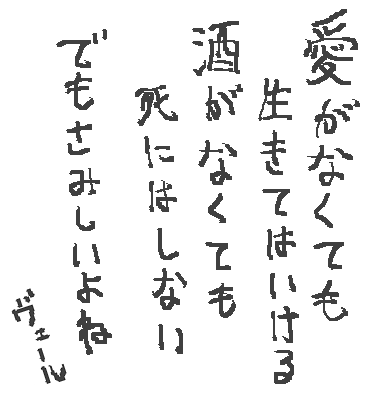 愛がなくても
生きてはいける
酒がなくても
死にはしない
でもさみしいよね
ヴェール